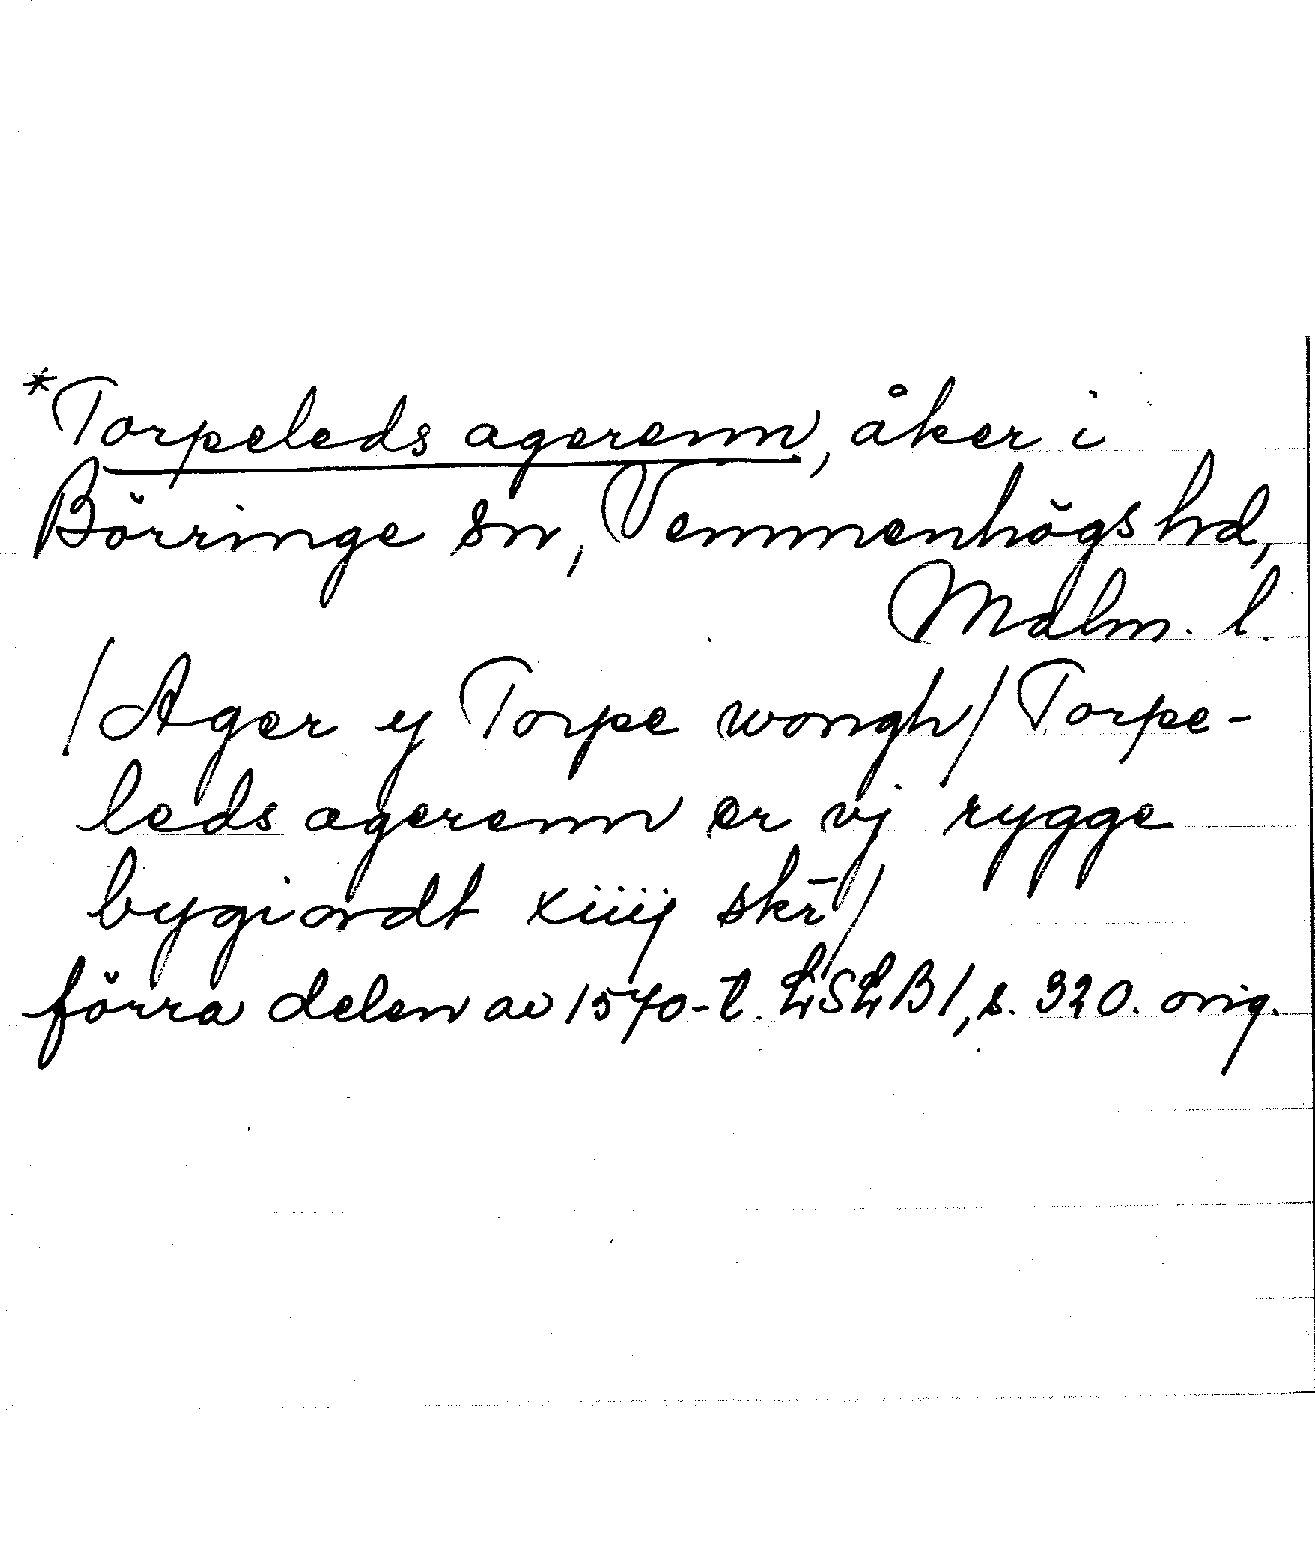 *Torpeleds agerenn, åker i
Börringe sn, Vemmenhögs hd,
Malm. l.
/Ager y Torpe wongh/ Torpe-
leds agerenn er vj rygge
bygiordt xiiij skr̄/
förra delen av 1570-t. LSLB 1, s. 320. orig.